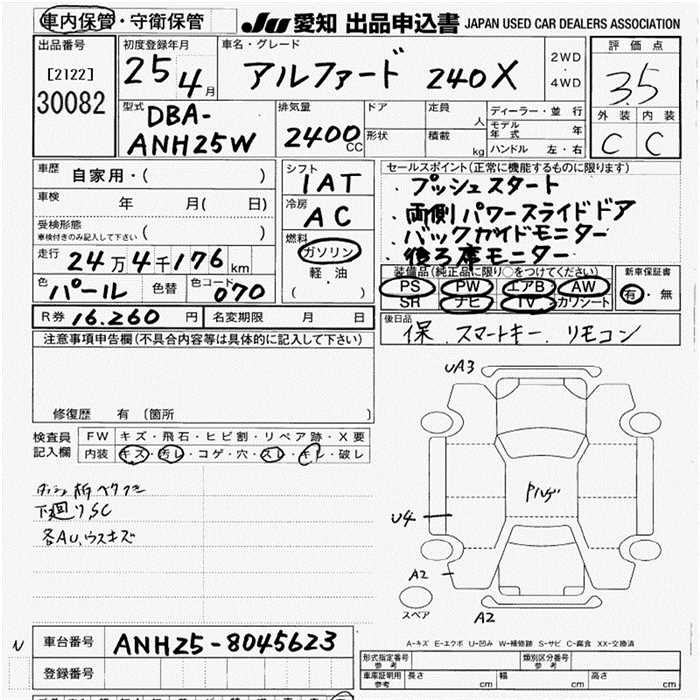 車内保管・守衛保管 JU 愛知 出品申込書 JAPAN USED CAR DEALERS ASSOCIATION
出品番号 初度登録年月 車名・グレード 評価点
[2122] 25 4月 アルファード 240X 2WD・4WD 3.5
30082
型式 排気量 ドア 定員 人 ディーラー・並行 外装 内装
DBA-ANH25W 2400CC 形状 積載 kg モデル年式 年 C C
ハンドル 左・右
車歴 自家用・( ) シフト 1AT セールスポイント(正常に機能するものに限ります)
車検 年 月( 日) 冷房 AC ・プッシュスタート
受検形態 ( ) ・両側パワースライドドア
車検付きのみ記入して下さい 燃料 ・バックガイドモニター
走行 24万4千176km ガソリン ・後ろ席モニター
軽・油 装備品(純正品に限り○をつけてください) 新車保証書
色 パール 色替 色コード 070 ( ) PS PW エアB AW 有・無
SR ナビ TV カワシート
R券 16.260円 名変期限 月 日 後日品
保、スマートキー、リモコン
注意事項申告欄(不具合内容等は具体的に記入して下さい)
UA3
修復歴 有 〔箇所 〕
検査員 FW キズ・飛石・ヒビ割・リペア跡・X要
記入欄 内装 キズ・汚レ・コゲ・穴・スレ・キレ・破レ
下廻りSC
各AU,ウスキズ
U4
A2
スペア
A2
A-キズ E-エクボ U-凹み W-補修跡 S-サビ C-腐食 XX-交換済
N 車台番号 ANH25-8045623
登録番号
形式指定番号 参考 類別区分番号 参考
車庫証明用 参考 長さ cm 幅 cm 高さ cm